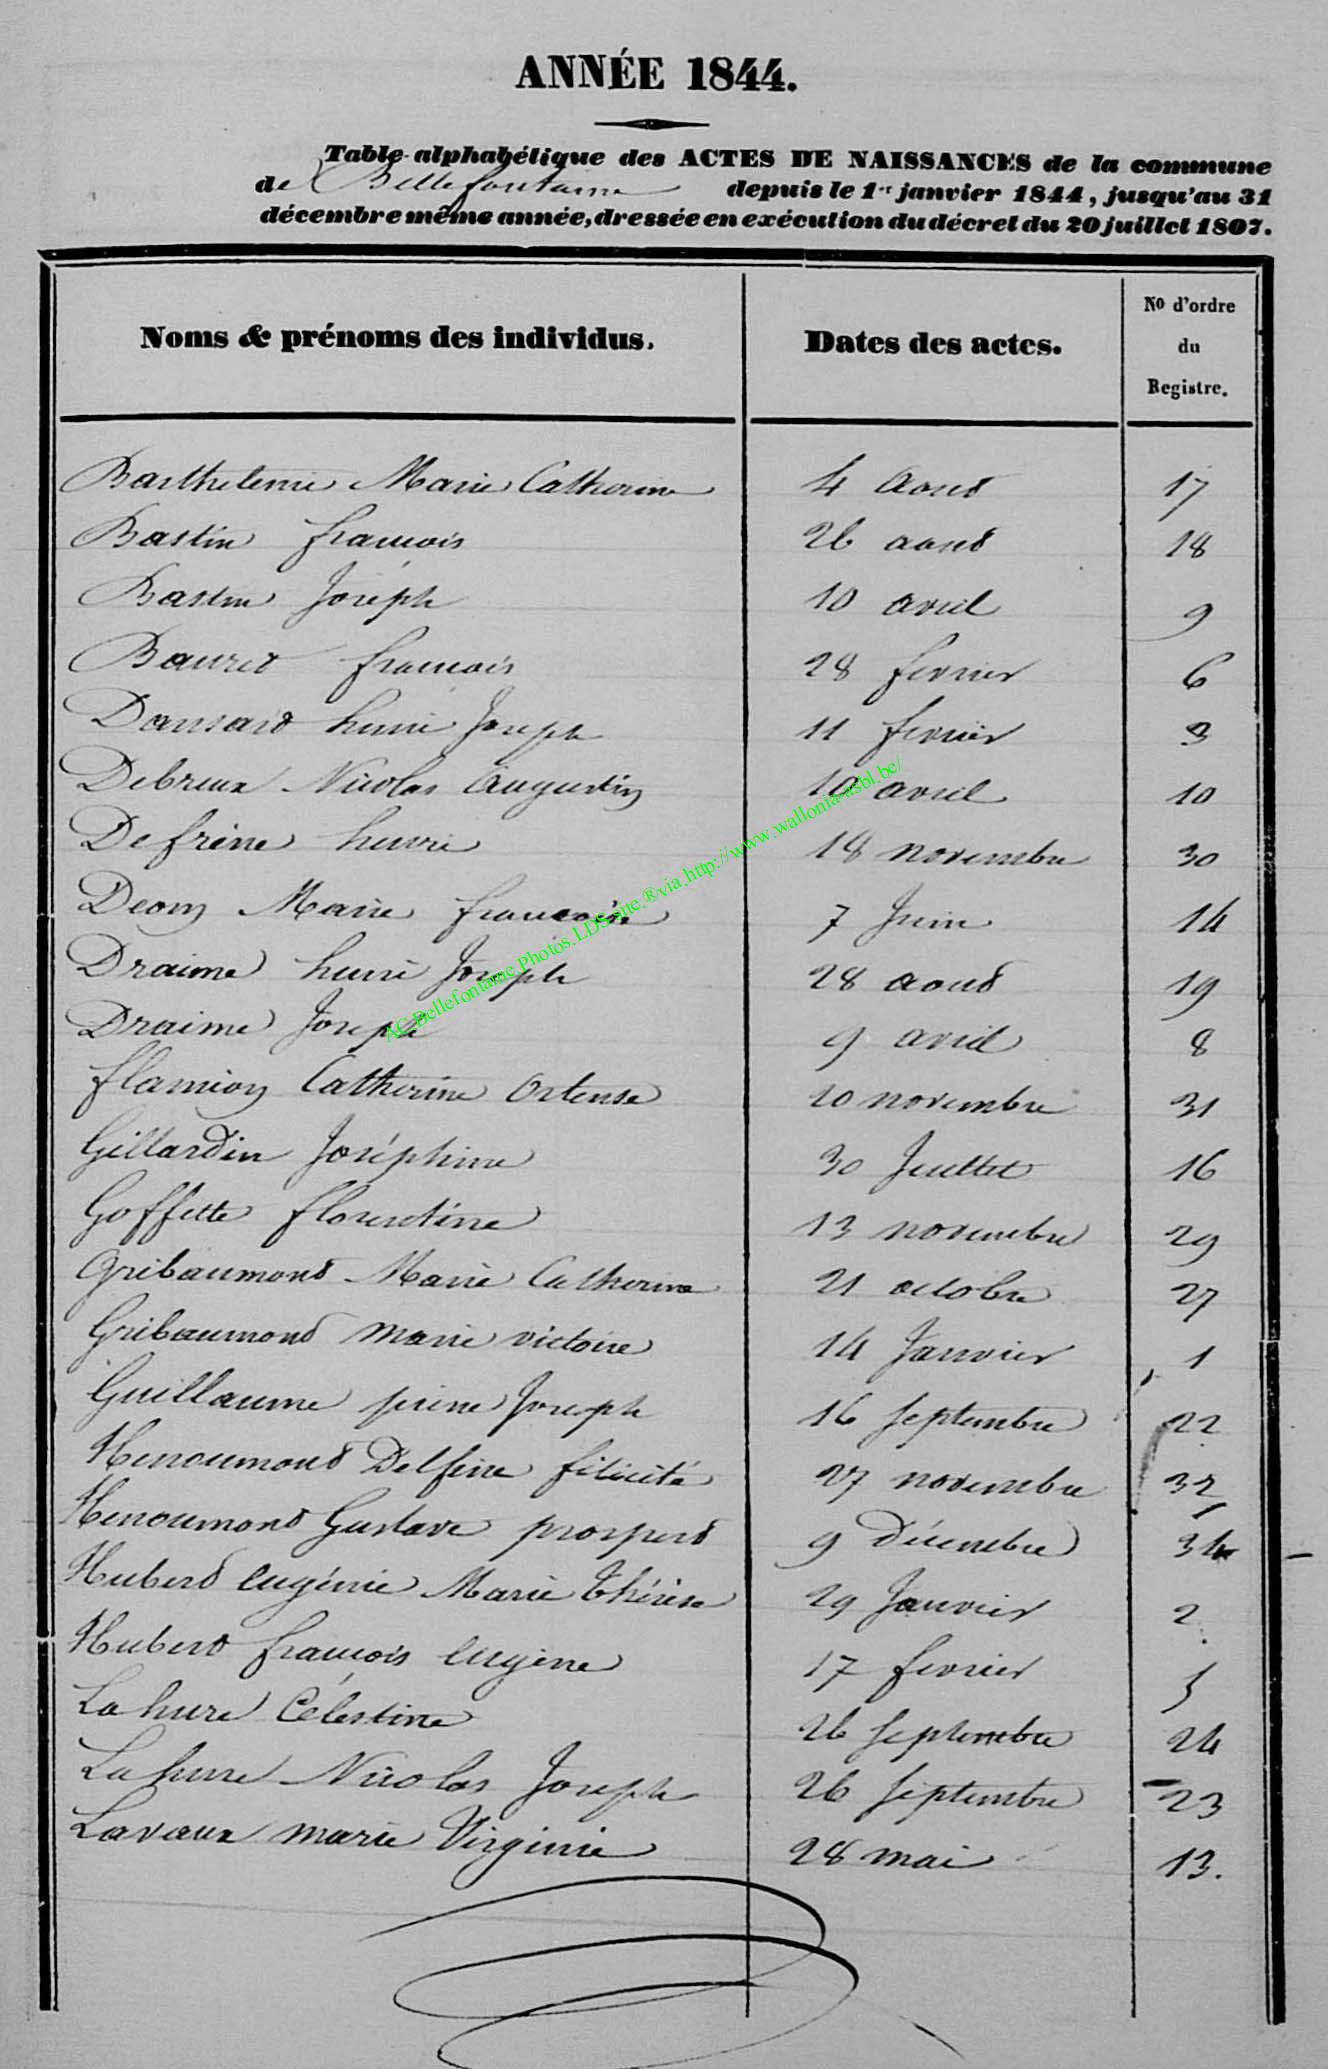 ANNÉE 1844.
Table alphabétique des ACTES DE NAISSANCES de la commune
de Bellefontaine depuis le 1er janvier 1844, jusqu'au 31
décembre même année, dressée en exécution du décret du 20 juillet 1807.
Noms & prénoms des individus. Dates des actes. No d'ordre du Registre.
Barthelemi Marie Catherine 4 Aout 17
Bastin francois 26 aout 18
Bastin Joséph 10 avril 9
Bauret francois 28 fevrier 6
Dansard henri Joseph 11 fevrier 3
Debreux Nicolas Augustin 10 avril 10
Defrene henri 18 novembre 30
Deom Marie francoise 7 Juin 14
Draime henri Joseph 28 aout 19
Draime Joseph 9 avril 8
flamion Catherine Ortense 20 novembre 31
Gillardin Joséphine 30 Juillet 16
Goffette florentine 13 novembre 29
Gribaumont Marie Catherine 21 octobre 27
Gribaumont marie victoire 14 Janvier 1
Guillaume pierre Joseph 16 Septembre 22
Henoumont Delfine félicité 27 novembre 32
Henoumont Gustave prospert 9 Décembre 34
Hubert eugénie Marie thérèse 29 Janvier 2
Hubert françois eugène 17 fevrier 5
Lahure Célestine 26 Septembre 24
Lahure Nicolas Joseph 26 Septembre 23
Lavaux marie Virginie 28 mai 13.
AC.Bellefontaine.Photos.LDS.site.®via.http://www.wallonia-asbl.be/